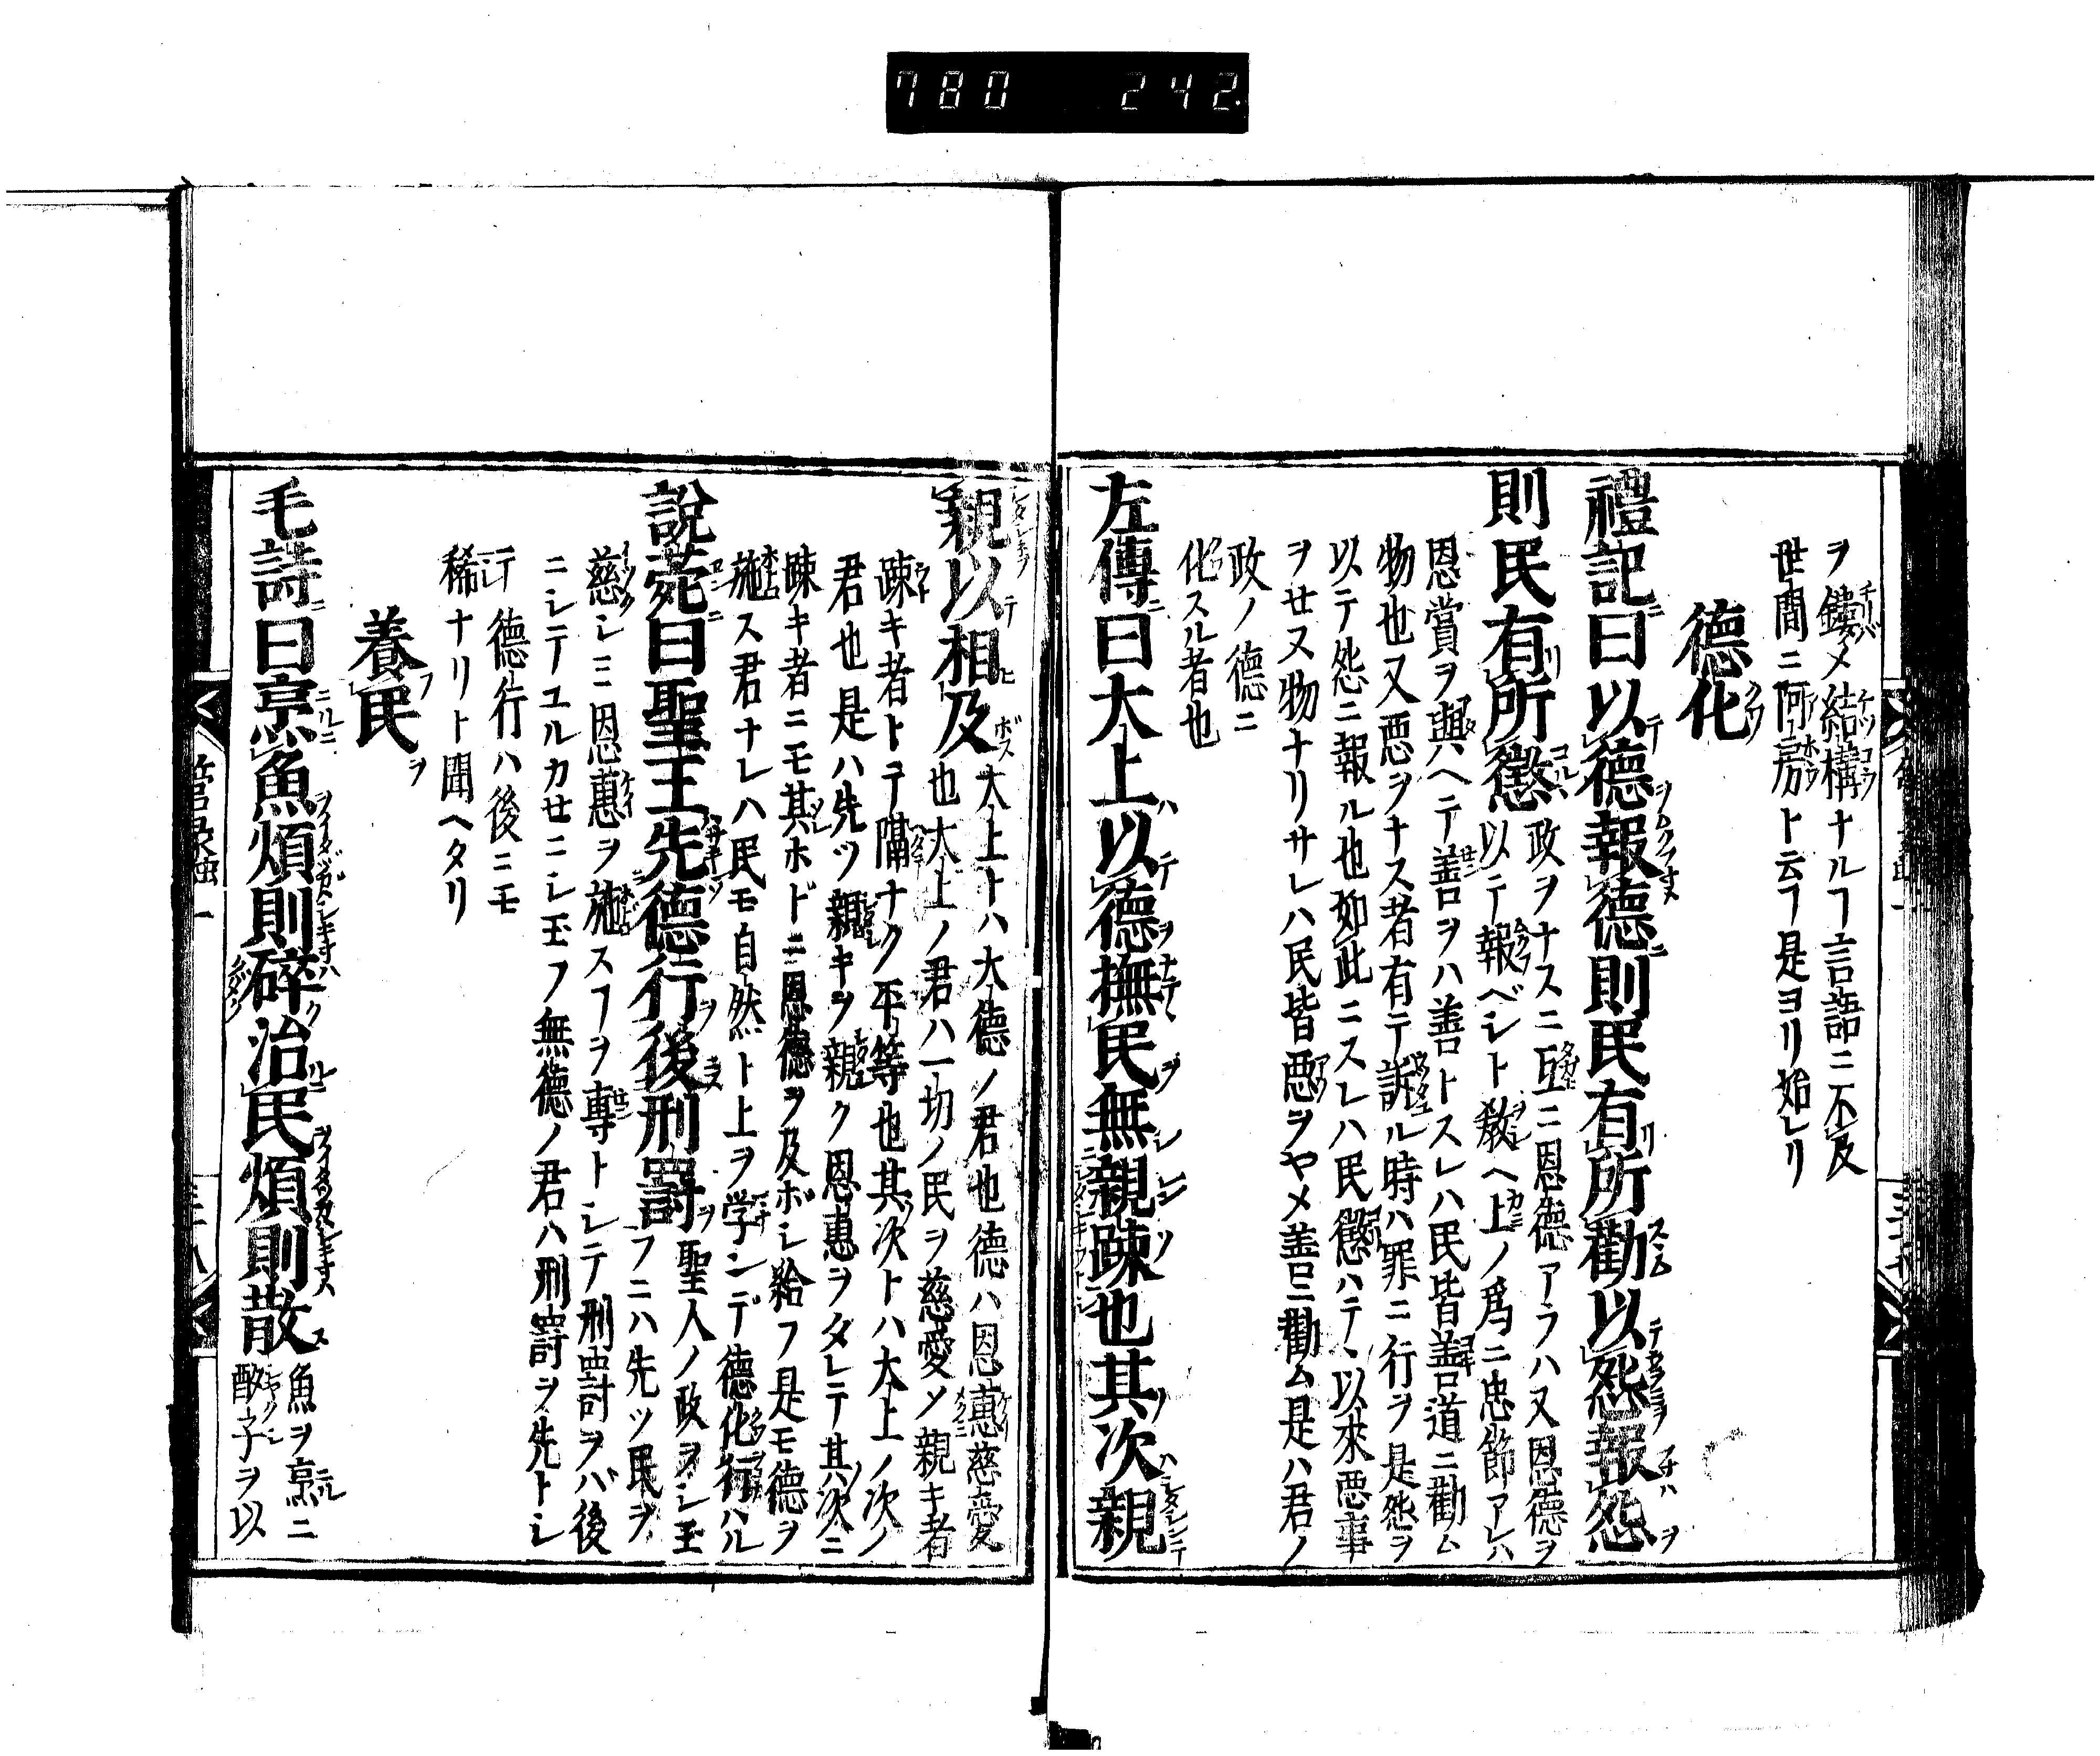 780 242
ヲ鏤メ結構ナルヿ言語ニ不及
世間ニ阿房ト云フ是ヨリ始レリ
德化
禮記曰以德報德則民有所勸以怨報怨
則民有所懲政ヲナスニ互ニ恩德アラハ又恩德ヲ
以テ報ベシト教ヘ上ノ爲ニ忠節アレハ
恩賞ヲ與ヘテ善ヲハ善トスレハ民皆善道ニ勸ム
物也又悪ヲナス者有テ訴ル時ハ罪ニ行ヲ是怨ヲ
以テ怨ニ報ル也如此ニスレハ民懲ハテヽ以來悪事
ヲせス物ナリサレハ民皆悪ヲヤメ善ニ勸ム是ハ君ノ
政ノ德ニ
化スル者也
左傳曰大上以德撫民無親疎也其次親
親以相及也大上トハ大德ノ君也德ハ恩惠慈愛
也大上ノ君ハ一切ノ民ヲ慈愛メ親キ者
疎キ者トテ隔ナク平等也其次トハ大上ノ次ノ
君也是ハ先ツ親キヲ親ク恩惠ヲタレテ其次ニ
疎キ者ニモ其ホドニ恩德ヲ及ボシ給フ是モ德ヲ
施ス君ナレハ民モ自然ト上ヲ学ンデ德化行ハル
說苑曰聖王先德行後刑罰聖人ノ政ヲシ玉
フニハ先ツ民ヲ
慈シミ恩惠ヲ施スヿヲ專トシテ刑罰ヲバ後
ニシテユルカせニシ玉フ無德ノ君ハ刑罰ヲ先トシ
テ德行ハ後ニモ
稀ナリト聞ヘタリ
養民
毛詩曰烹魚煩則碎治民煩則散魚ヲ烹ニ
酌子ヲ以